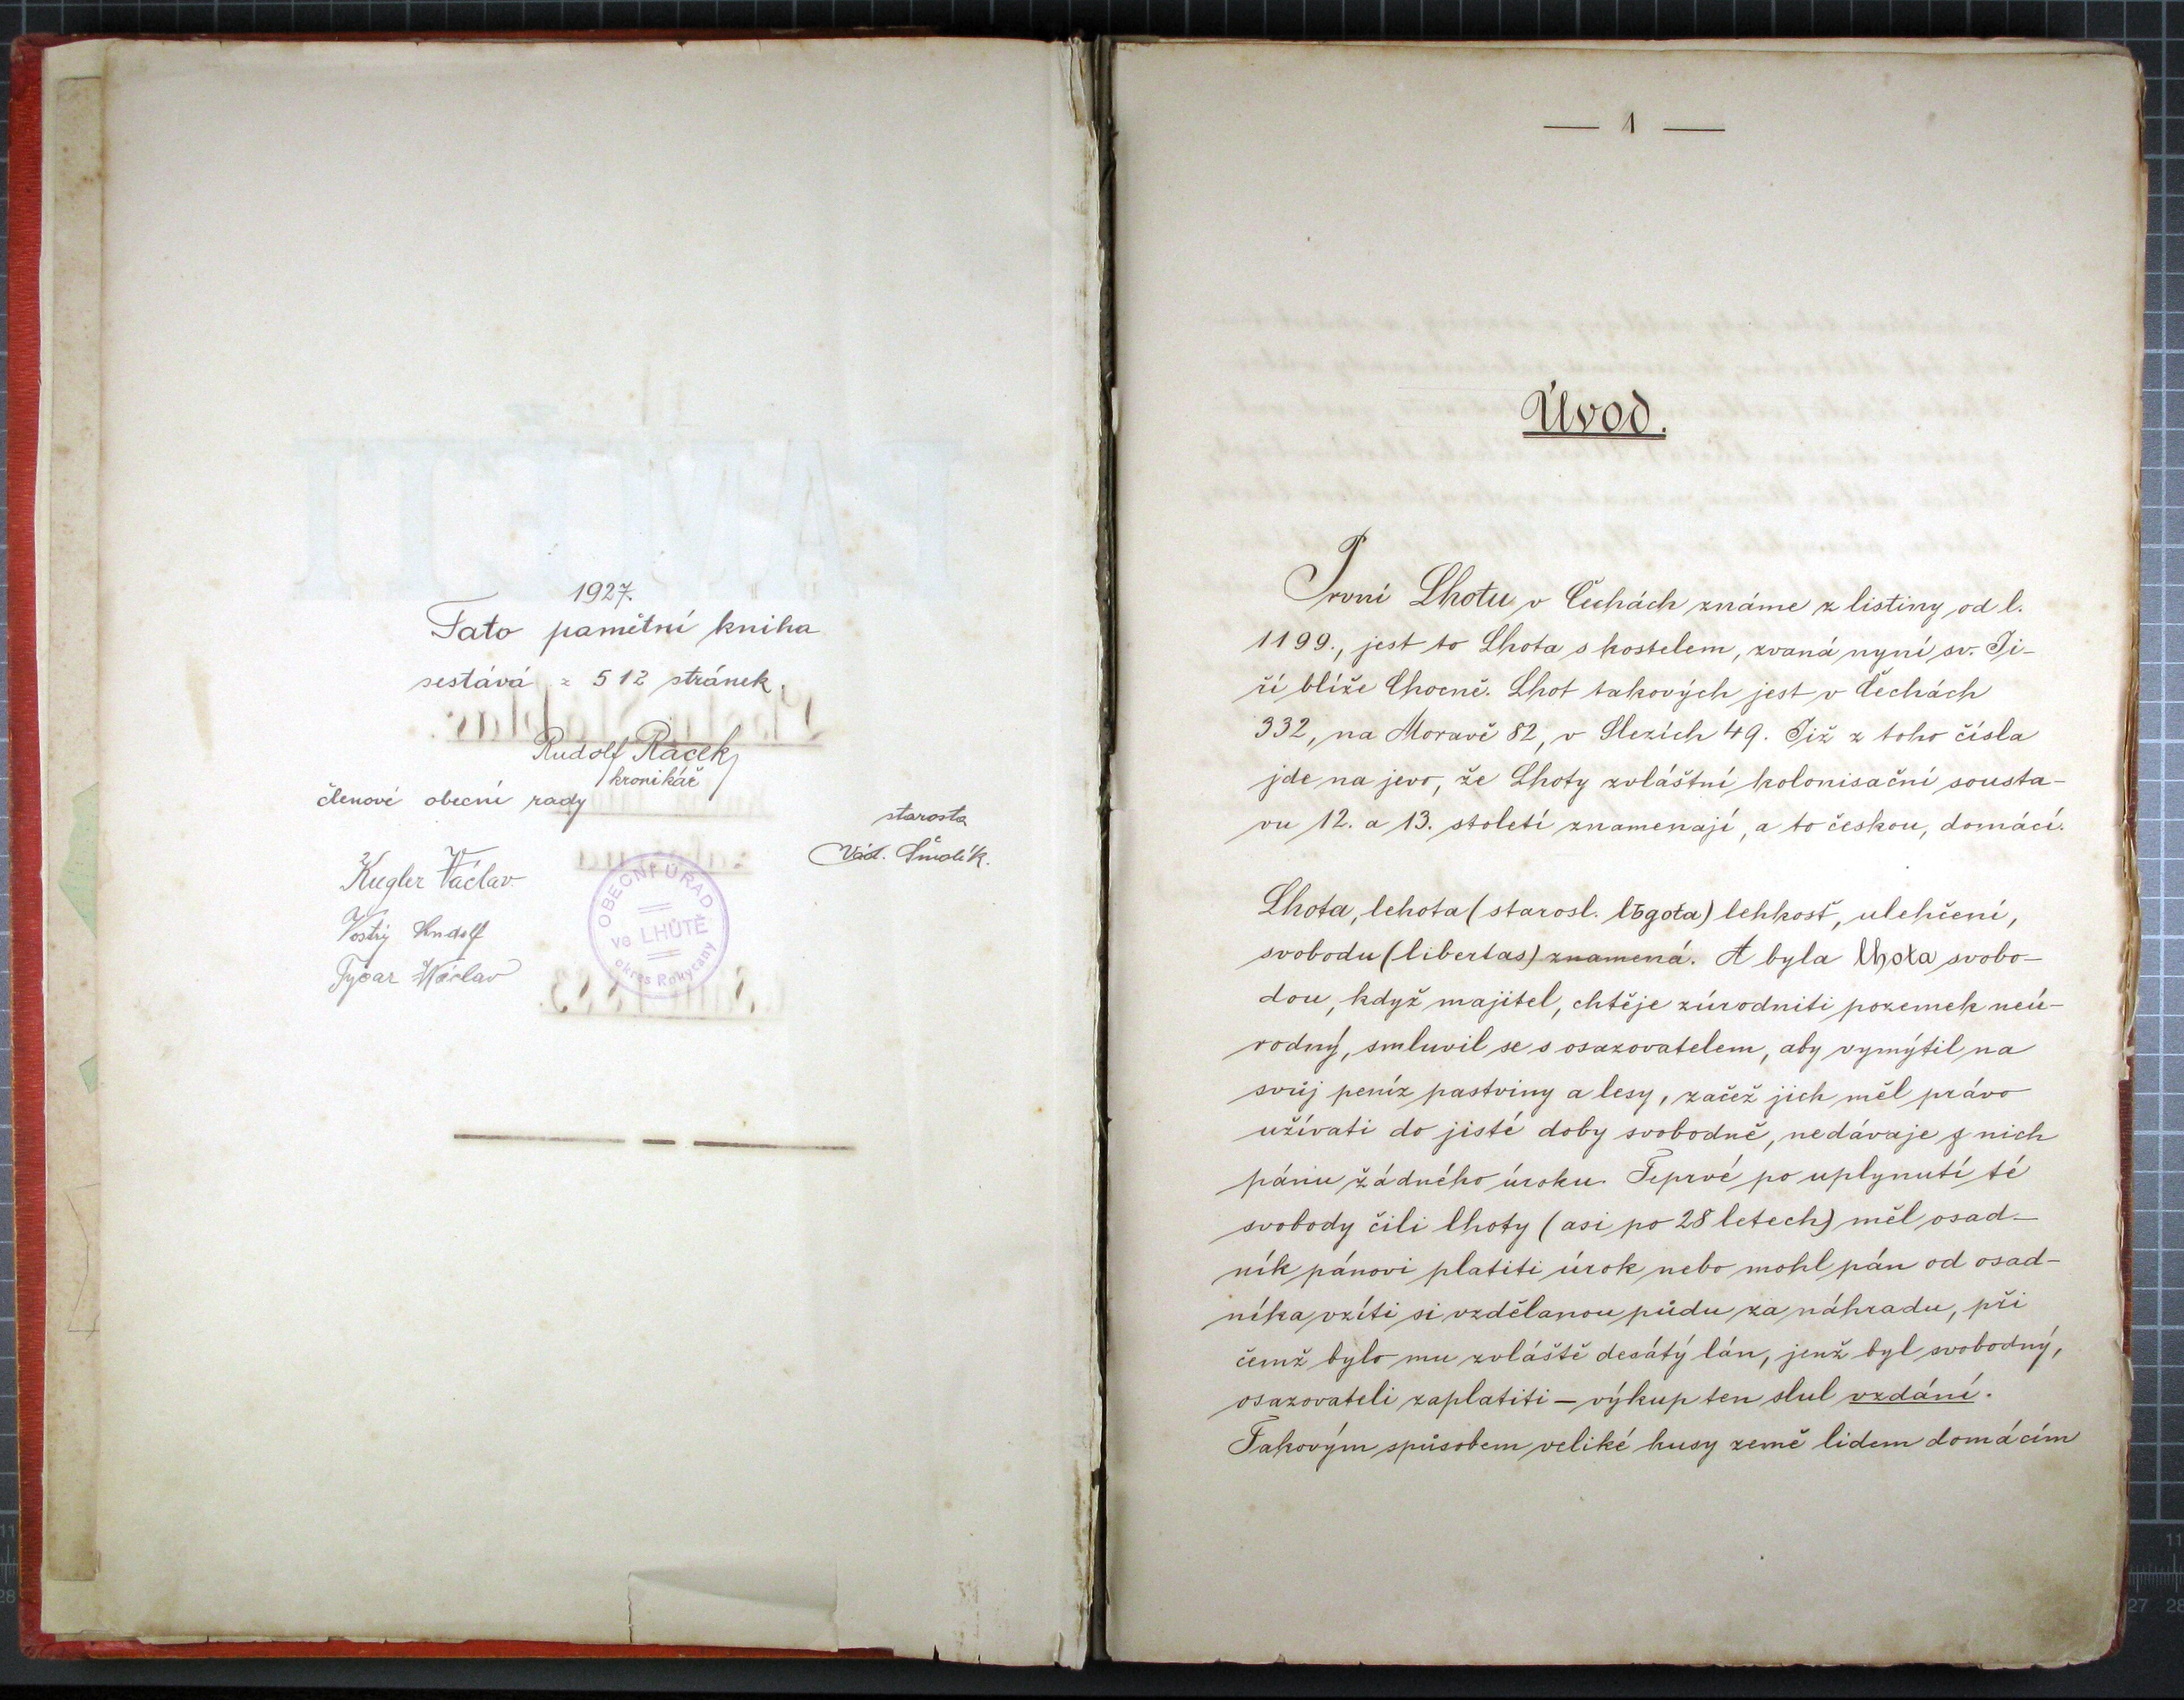 1927.
Tato pamětní kniha
sestává z 512 stránek.
Rudolf Racek
kronikář
členové obecní rady
starosta
Václ. Šmolík.
Kugler Václav
Vostrý Rudolf
Václav
OBECNÍ ÚŘAD
ve LHŮTĚ
okres Rokycany
— 1 —
Úvod.
První Lhotu v Čechách známe z listiny od l.
1199., jest to Lhota s kostelem, zvaná nyní sv. Ji-
ří blíže Chocně. Lhot takových jest v Čechách
332, na Moravě 82, v Slezích 49. Již z toho čísla
jde na jevo, že Lhoty zvláštní kolonisační sousta-
vu 12. a 13. století znamenají, a to českou, domácí.
Lhota, lehota (starosl. lьgota) lehkost, ulehčení,
svobodu (libertas) znamená. A byla lhota svobo-
dou, když majitel, chtěje zúrodniti pozemek neú-
rodný, smluvil se s osazovatelem, aby vymýtil na
svůj peníz pastviny a lesy, začež jich měl právo
užívati do jisté doby svobodně, nedávaje z nich
pánu žádného úroku. Teprvé po uplynutí té
svobody čili lhoty (asi po 28 letech) měl osad-
ník pánovi platiti úrok nebo mohl pán od osad-
níka vzíti si vzdělanou půdu za náhradu, při
čemž bylo mu zvláště desátý lán, jenž byl svobodný,
osazovateli zaplatiti – výkup ten slul vzdání.
Takovým spůsobem veliké kusy země lidem domácím